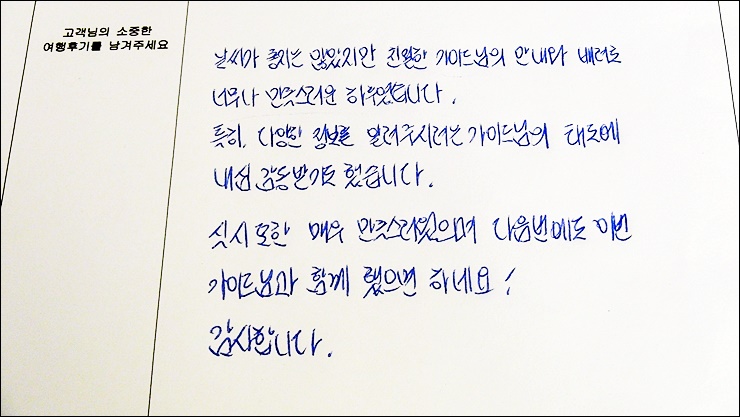 고객님의 소중한
여행후기를 남겨주세요
날씨가 좋지는 않았지만 친절한 가이드님의 안내와 배려로
너무나 만족스러운 하루였습니다.
특히, 다양한 정보를 알려주시려는 가이드님의 태도에
내심 감동받기도 했습니다.
식사 또한 매우 만족스러웠으며 다음번에도 이번
가이드님과 함께 했으면 하네요!
감사합니다.